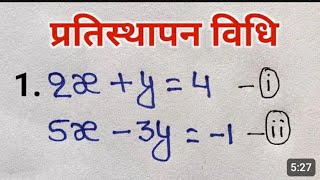 प्रतिस्थापन विधि
1. 2x + y = 4 - (i)
5x - 3y = -1 - (ii)
5:27